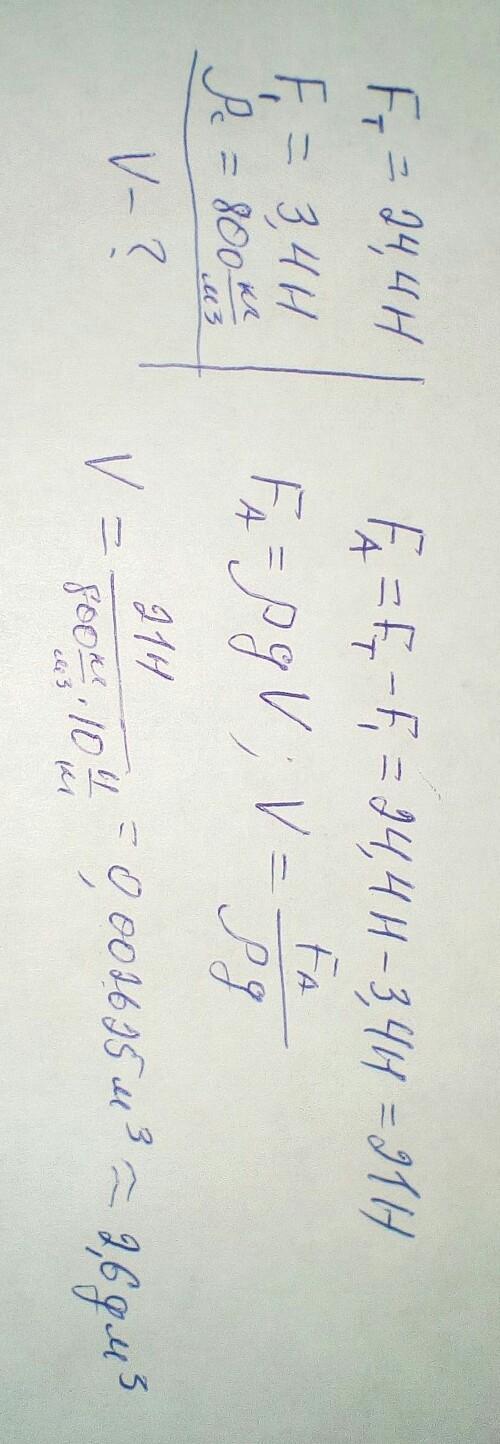 Fт = 24,4Н
F₁ = 3,4Н
ρс = 800 кг/м3
V - ?
FА = Fт - F₁ = 24,4Н - 3,4Н = 21Н
FА = ρgV; V = FА/ρg
V = 21Н/800 кг/м3 · 10 Н/кг = 0,002625 м³ ≈ 2,6 дм³